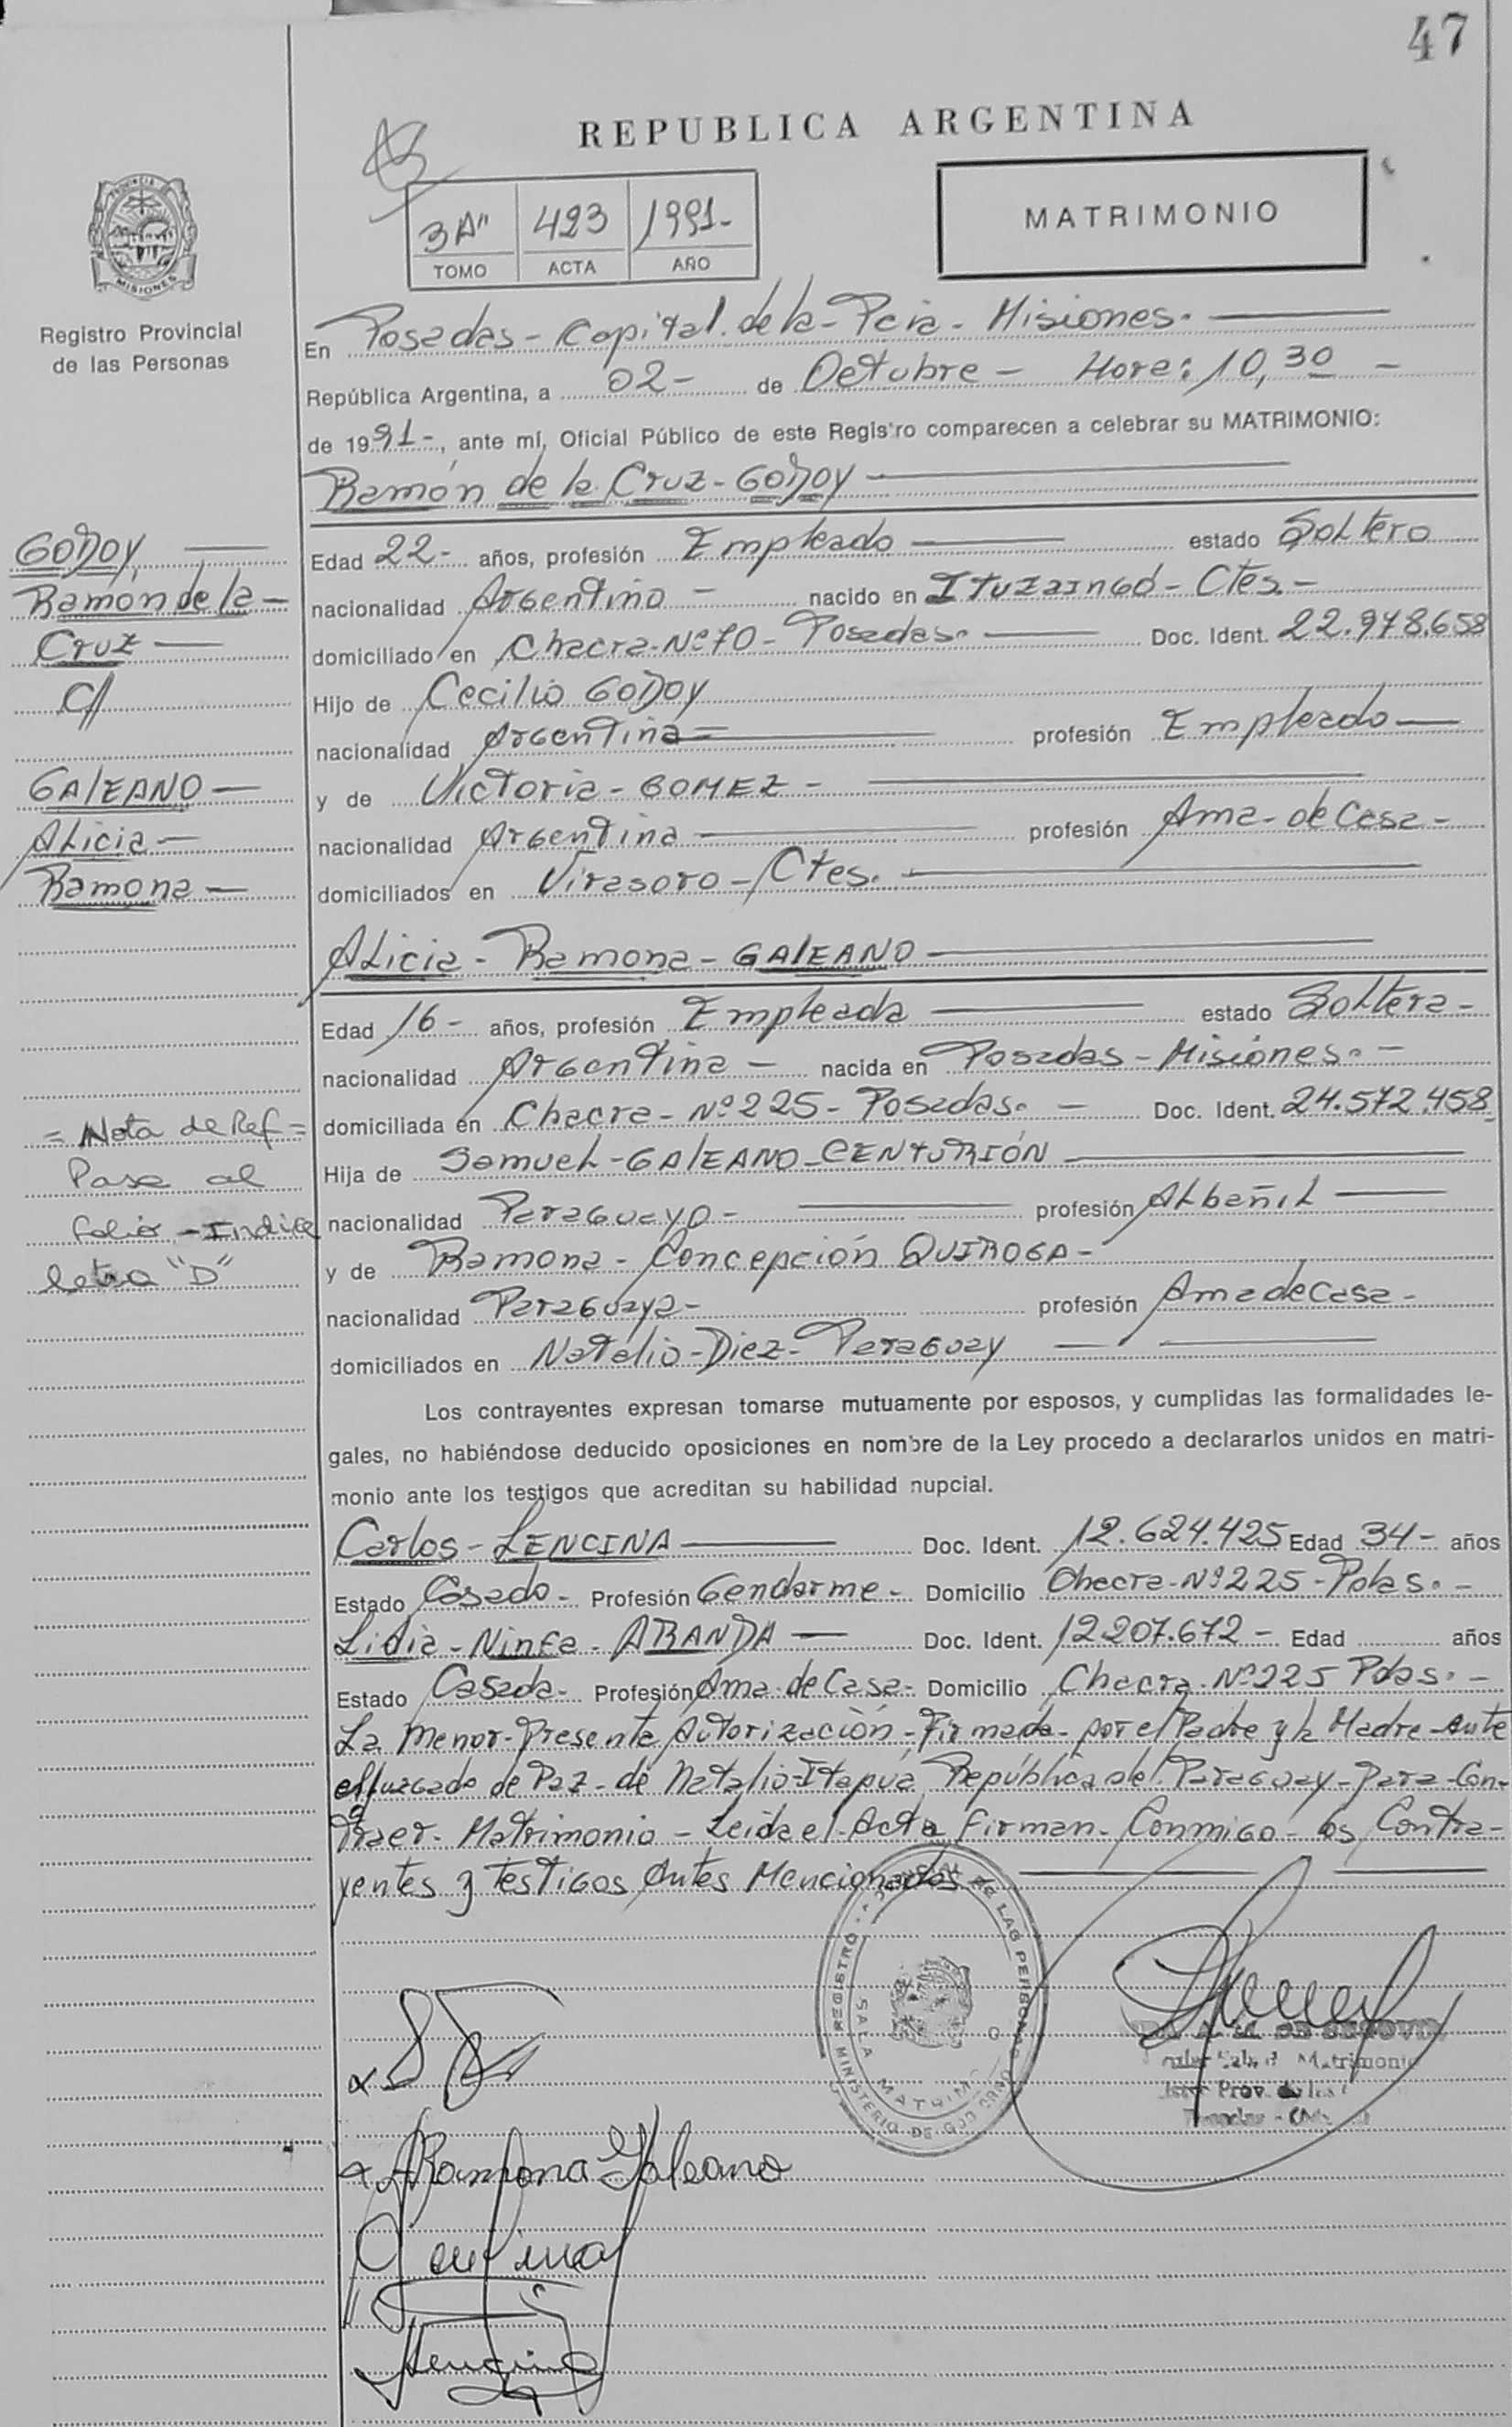 47
REPUBLICA ARGENTINA
3 A" 423 1991-
TOMO ACTA AÑO
MATRIMONIO
PROVINCIA DE
MISIONES
Registro Provincial
de las Personas
En Posadas - Capital de la - Pcia - Misiones.
República Argentina, a 02- de Octubre - Hora: 10,30 -
de 1991-, ante mí, Oficial Público de este Registro comparecen a celebrar su MATRIMONIO:
Ramón de la Cruz - GODOY
GODOY,
Ramón de la -
Cruz -
C/
GALEANO -
Alicia -
Ramona -
Edad 22- años, profesión Empleado estado Soltero
nacionalidad Argentino - nacido en Ituzaingó - Ctes. -
domiciliado en Chacra - Nº 70 - Posadas. Doc. Ident. 22.978.658
Hijo de Cecilio GODOY
nacionalidad Argentina = profesión Empleado -
y de Victoria - GOMEZ -
nacionalidad Argentina profesión Ama - de Casa -
domiciliados en Virasoro - Ctes.
Alicia - Ramona - GALEANO
Edad 16 - años, profesión Empleada estado Soltera -
nacionalidad Argentina - nacida en Posadas - Misiones. -
domiciliada en Chacra - Nº 225 - Posadas. - Doc. Ident. 24.572.458
Hija de Samuel - GALEANO - CENTURIÓN
nacionalidad Paraguayo - profesión Albañil
y de Ramona - Concepción QUIROGA -
nacionalidad Paraguaya - profesión Ama de Casa -
domiciliados en Natalio - Diez - Paraguay
= Nota de Ref =
Pasa al
folio - Indice
letra "D"
Los contrayentes expresan tomarse mutuamente por esposos, y cumplidas las formalidades le-
gales, no habiéndose deducido oposiciones en nombre de la Ley procedo a declararlos unidos en matri-
monio ante los testigos que acreditan su habilidad nupcial.
Carlos - LENCINA Doc. Ident. 12.624.425 Edad 34 - años
Estado Casado - Profesión Gendarme - Domicilio Chacra - Nº 225 - Pdas. -
Lidia - Ninfa - ARANDA - Doc. Ident. 12.207.672 - Edad años
Estado Casada - Profesión Ama de Casa - Domicilio Chacra - Nº 225 Pdas. -
La Menor - Presenta Autorización - Firmada - por el Padre y la Madre - Ante
el Juzgado de Paz - de Natalio - Itapúa, República del Paraguay - Para - Con-
traer - Matrimonio - Leida el Acta Firman - Conmigo - los Contra-
yentes y testigos Antes Mencionados
REGISTRO DE LAS PERSONAS
SALA MATRIMO
MINISTERIO DE GOBIERNO
DE SEGOVIA
Matrimonio
Prov. de las
A Ramona Galeano
Lencina